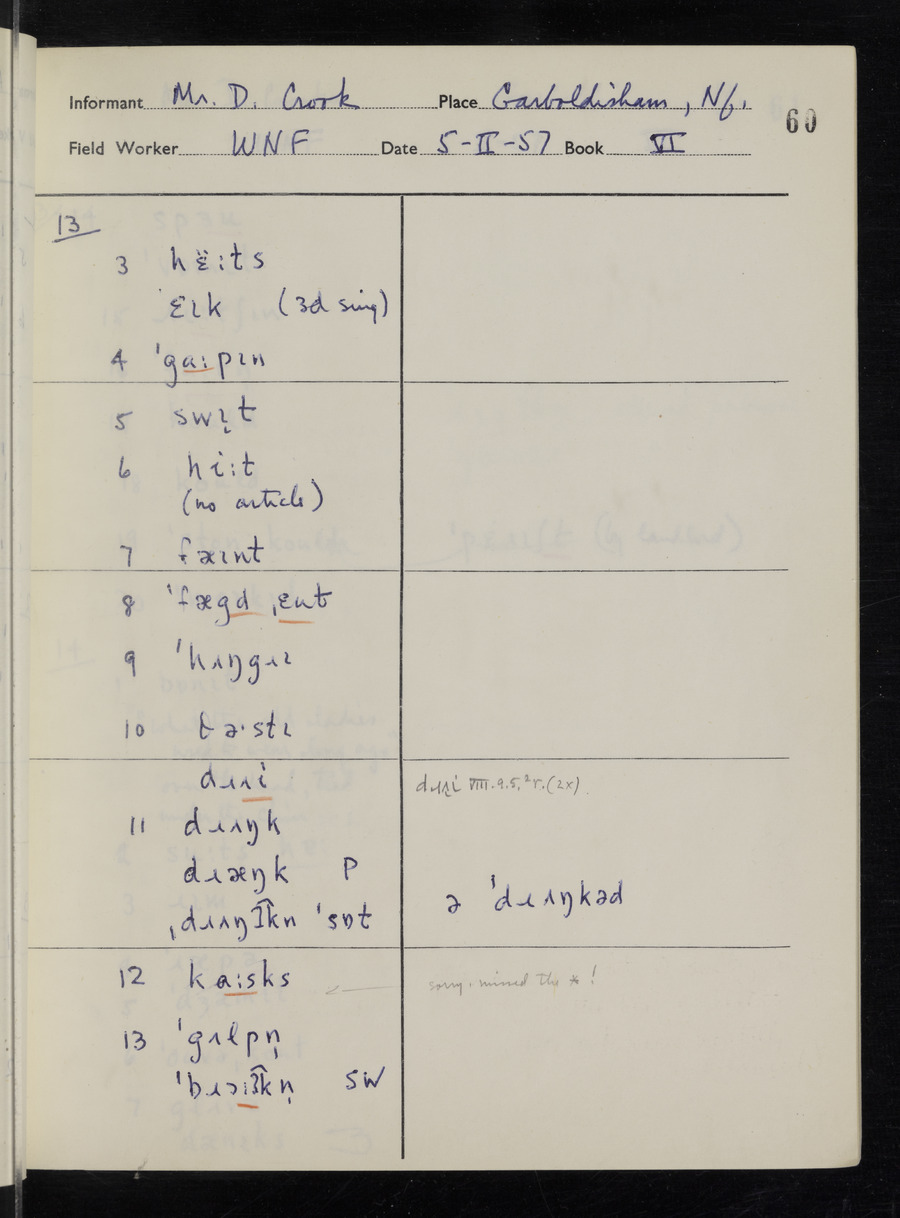 Informant Mr. D. Crook Place Garboldisham, Nf. 60
Field Worker WNF Date 5-II-57 Book VI
13
3 hɛ̈:ts
ɛɪk (3d sing)
4 ˈgɑ:pɪn
5 swɪ̨t
6 hi:t
(no article)
7 fæɪnt
8 ˈfægd ˌɛut
9 ˈhʌŋgɹɪ
10 θə·stɪ
dɹɪi
dɹɪi VIII.9.5, ²r. (2x).
11 dɹʌŋk
dɹæŋk P
ə ˈdɹʌŋkəd
ˌdɹʌŋʔkn ˈsɒt
12 kɑ:sks
sorry, missed the * !
13 ˈgʌlpn̩
ˈbɹɔiʔkn̩ SW